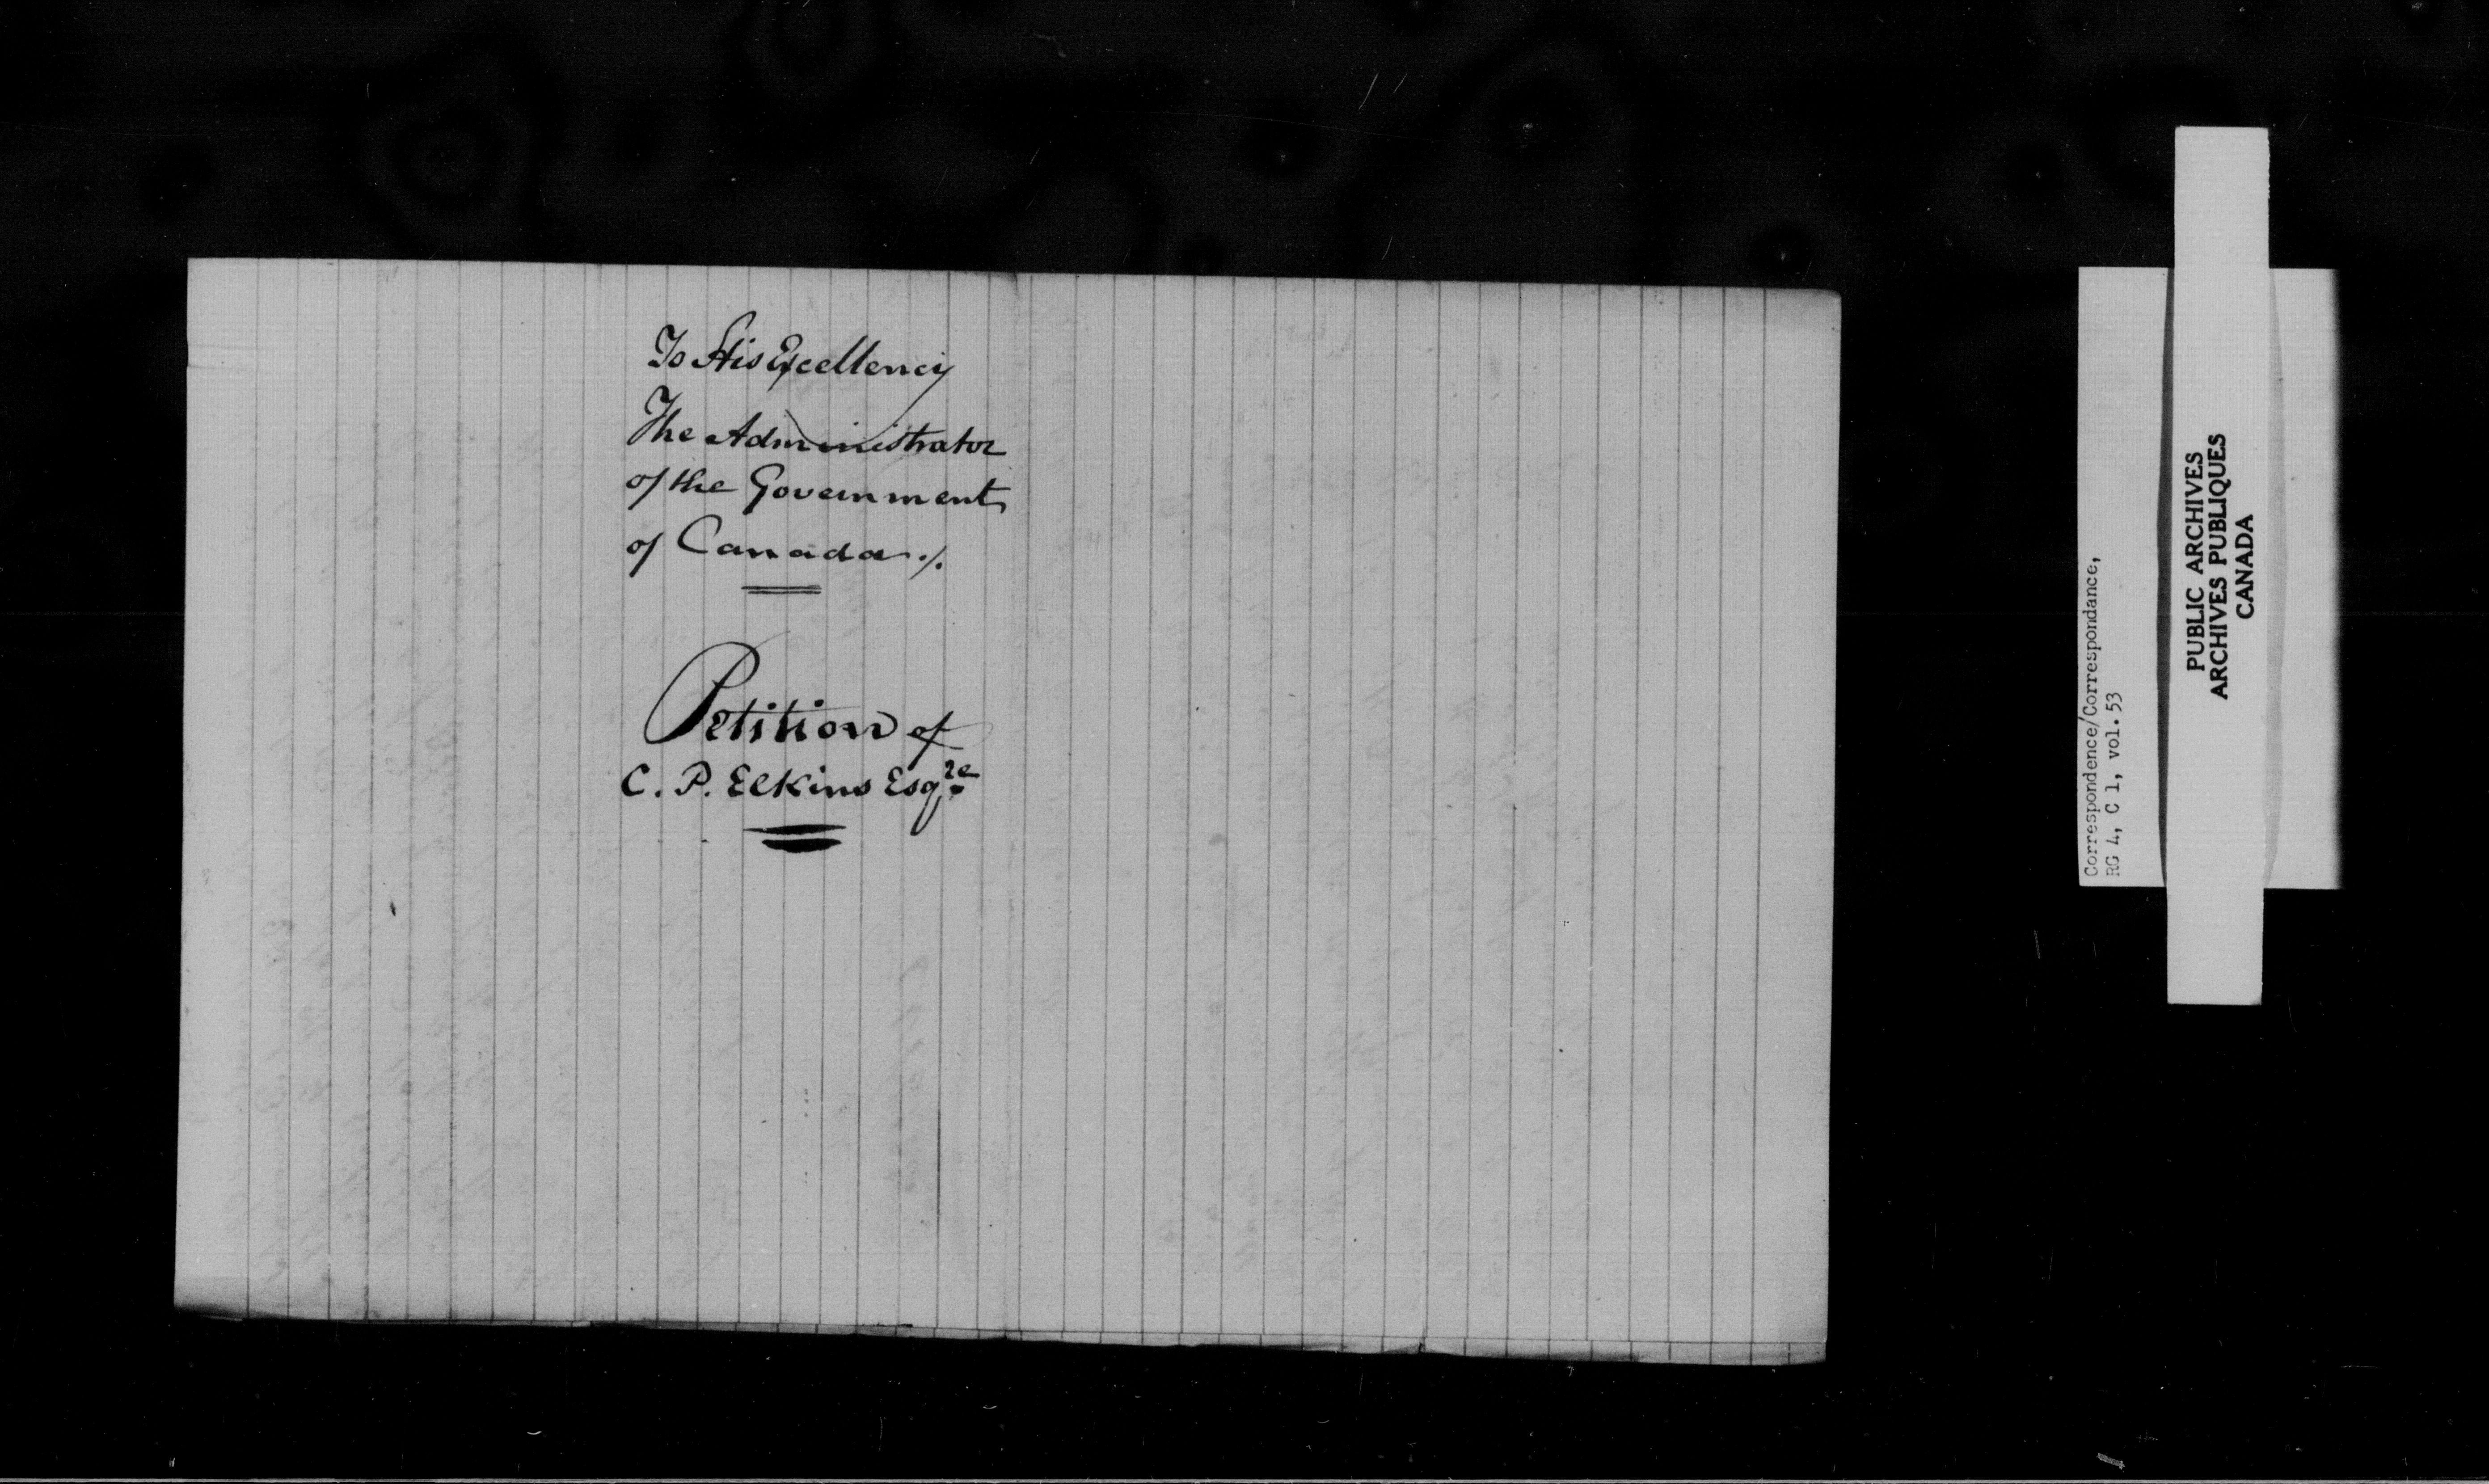 To His Excellency
The Administrator
of the Government
of Canada ./.
Petition of
C. P. Elkins Esqre
Correspondence/Correspondance,
RG 4, C 1, vol. 53
PUBLIC ARCHIVES
ARCHIVES PUBLIQUES
CANADA